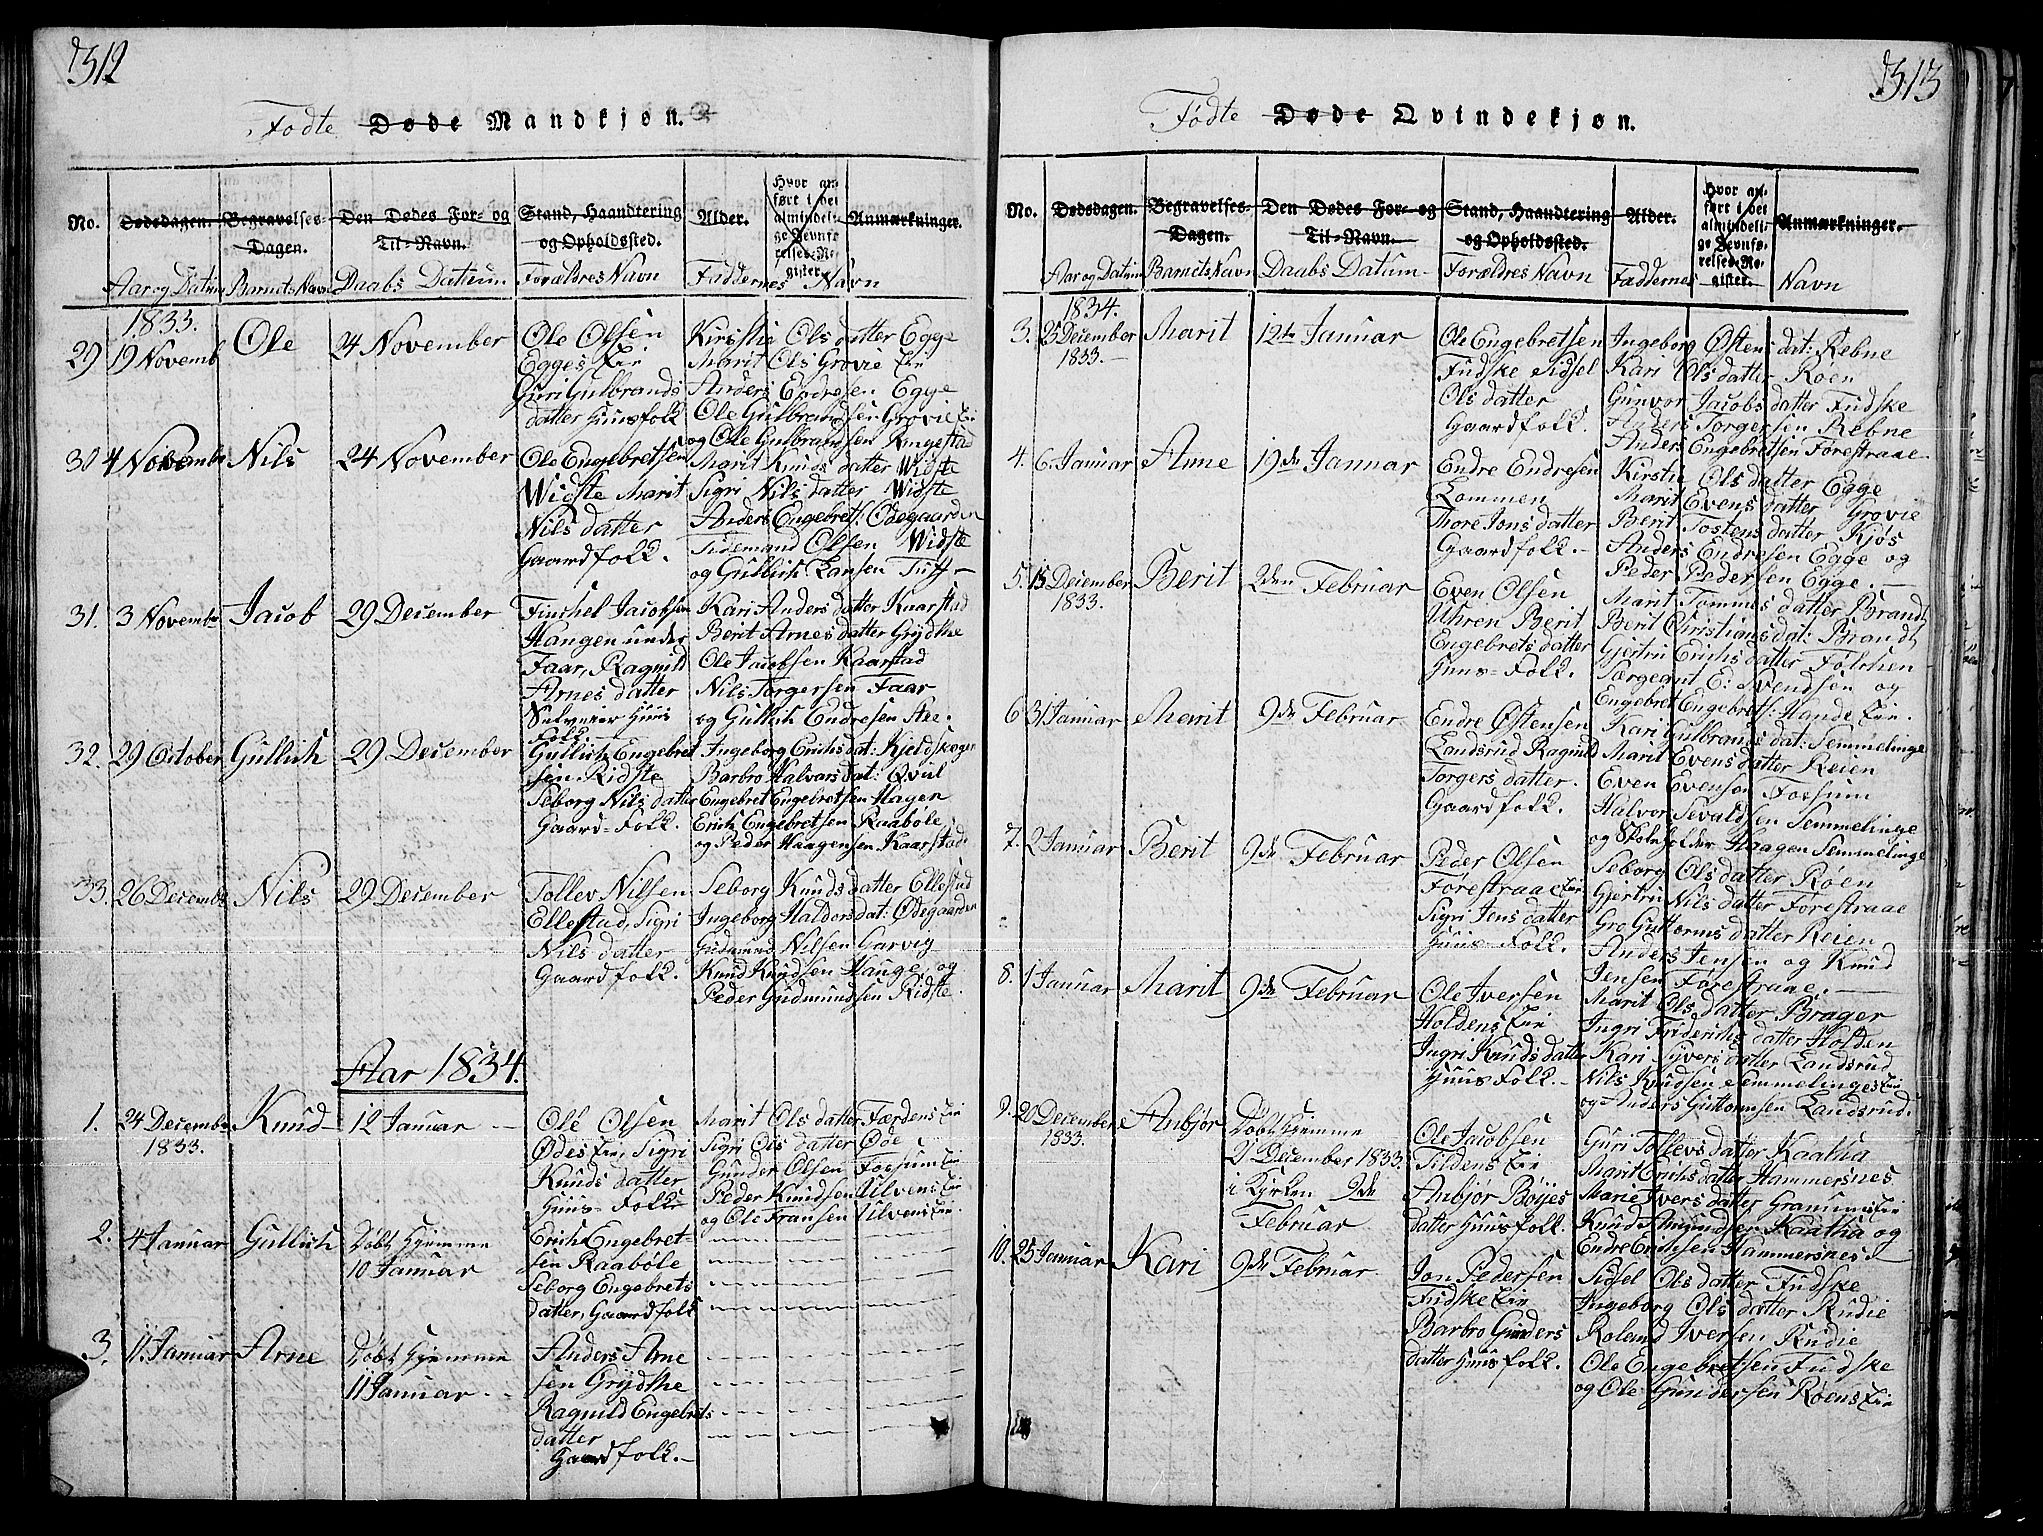 312
Fødte Døde Mandkjøn.
No.
Dødsdagen.
Begravelses-
Dagen.
Den Dødes For- og
Til-Navn.
Stand, Haandtering
og Opholdssted.
Alder.
Hvor an-
ført i det
almindeli-
ge Jevnfø-
relses-Re-
gister.
Anmærkninger.
Aar og Datum
Barnets Navn
Daabs Datum
Forældres Navn
Faddernes Navn
1833.
29 19 Novemb
Ole
24 November
Ole Olsen
Egges Eie
Guri Gulbrands
datter Huusfolk
Kirstie Ols datter Egge
Marit Ols Grovie Eie
Anders Endresen Egge
Ole Gulbrandsen Grovie Eie
og Ole Gulbrandsen Ringestad
30 4 Novembr
Nils
24 November
Ole Engebretsen
Widste Marit
Nils datter
Gaardfolk.
Marit Knuds datter Widste
Sigri Nils datter Widste
Anders Engebrets: Ødegaarden
Tidemand Olsen Widste
og Gullich Hansen Tuff
31. 3 Novembr
Jacob
29 December
Finchel Jacobsen
Hangen under
Faar, Ragnild
Arnes datter
Selveier Huus
Folk.
Kari Anders datter Kaarstad
Berit Arnes datter Grydhe
Ole Jacobsen Kaarstad
Nils Torgersen Faar
og Gullich Endresen Hee.
32. 29 October
Gullich
29 December
Gullich Engebret
sen Ridste
Seborg Nils datter
Gaard-Folk.
Ingeborg Erichs dat: Kjeldskogen
Barbro Halvors dat: Qvul
Engebret Engebretsen Hagen
Erich Engebretsen Raabøle
og Peder Haagensen Kaarstad
33. 26 Decembr
Nils
29 December
Tollev Nilsen
Ellestad, Sigri
Nils datter
Gaardfolk.
Seborg Knuds datter Ellestad
Ingeborg Haldors dat: Ødegaarden
Gudmund Nilsen Garvig
Knud Knudsen Hauge og
Peder Gudmundsen Ridste.
Aar 1834.
1. 24 Decembr
1833.
Knud
12 Januar
Ole Olsen
Ødes Eie, Sigri
Knuds datter
Huus-Folk
Marit Ols datter Færdens Eie
Sigri Ols datter Øde
Gunder Olsen Fossum Eie
Peder Knudsen Ulvens Eie
og Ole Fransen Ulvens Eie.
2. 4 Januar
Gullich
Døbt hjemme
10 Januar
Erich Engebret-
sen Raabøle
Seborg Engebrets
datter, Gaardfolk
3. 11 Januar
Arne
Døbt hjemme
11 Januar
Anders Arne
sen Grydhe
Ragnild Engebrets
datter
Gaardfolk.
313
Fødte Døde Qvindekjøn.
No.
Dødsdagen.
Begravelses-
Dagen.
Den Dødes For- og
Til-Navn.
Stand, Haandtering
og Opholdssted.
Alder.
Hvor an-
ført i det
almindeli-
ge Jevnfø-
relses-Re-
gister.
Anmærkninger.
Aar og Datum
Barnets Navn
Daabs Datum
Forældres Navn
Faddernes Navn
1834.
3. 25 December
1833.
Marit
12te Januar
Ole Engebretsen
Fudske Sidsel
Ols datter
Gaardfolk.
Ingeborg Østens dat: Rebne
Kari Ols datter Røen
Gunvor Jacobs datter Fudske
Anders Torgersen Rebne
Anders Engebretsen Førestraae
4. 6 Januar
Anne
19de Januar
Endre Endresen
Lommen
Thore Jons datter
Gaardfolk.
Kirstie Ols datter Egge
Marit Evens datter Grovie
Berit Tostens datter Kjøs
Anders Endresen Egge og
Peder Pedersen Egge.
5. 15 December
1833.
Berit
2den Februar
Even Olsen
Uhren Berit
Engebrets datter
Huus-Folk.
Marit Tommes datter Brandt
Berit Christians dat: Brandt
Gjertru Erichs datter Følchen
Sergeant E: Svendsen og
Engebret Engebrets: Hande Eie.
6 31 Januar
Marit
9de Februar
Endre Østensen
Landsrud Ragnild
Torgers datter
Gaardfolk.
Kari Gulbrands dat: Semmelinge
Marit Evens datter Reien
Even Evensen Fossum
Halvor Sevaldsen Semmelinge
og Skoleholder Haagen Semmelinge
7. 2 Januar
Berit
9de Februar
Peder Olsen
Førestraae Eie
Sigri Jens datter
Huus-Folk.
Seborg Ols datter Røen
Gjertru Nils datter Førestraae
Gro Guttorms datter Reien
Anders Jensen og Knud
Jensen Førestraae.
8. 1 Januar
Marit
9de Februar
Ole Iversen
Holdens Eie
Ingri Knuds datter
Huus Folk.
Marit Ols datter Brager
Ingri Friderichs datter Holden
Kari Syvers datter Landsrud
Nils Knudsen Semmelinges Eie
og Anders Guttormsen Landsrud.
9. 20 December
1833.
Anbjør
Døbt hjemme
21 December 1833.
i Kjrken 9de
Februar
Ole Jacobsen
Tildens Eie
Anbjør Bøyes
datter Huusfolk.
Guri Tollevs datter Kaatha
Marit Erichs datter Hammersnes
Marie Ivers datter Granums Eie
Knud Amundsen Kaatha og
Endre Erichsen Hammersnes
10. 25 Januar
Kari
9de Februar
Jon Pedersen
Fudske Eie
Barbro Gunders
datter Huusfolk.
Sidsel Ols datter Fudske
Ingeborg Ols datter Rudie
Roland Iversen Rudie
Ole Engebretsen Fudske
og Ole Gundersen Røens Eie